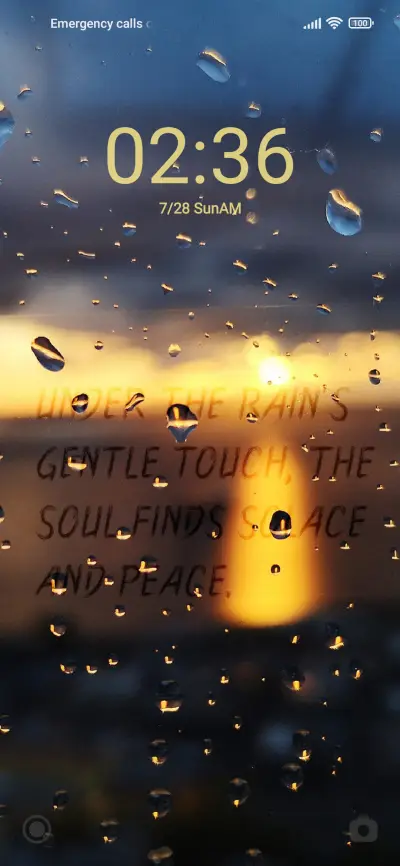 Emergency calls
100
02:36
7/28 SunAM
UNDER THE RAIN'S
GENTLE TOUCH, THE
SOUL FINDS SOLACE
AND PEACE.